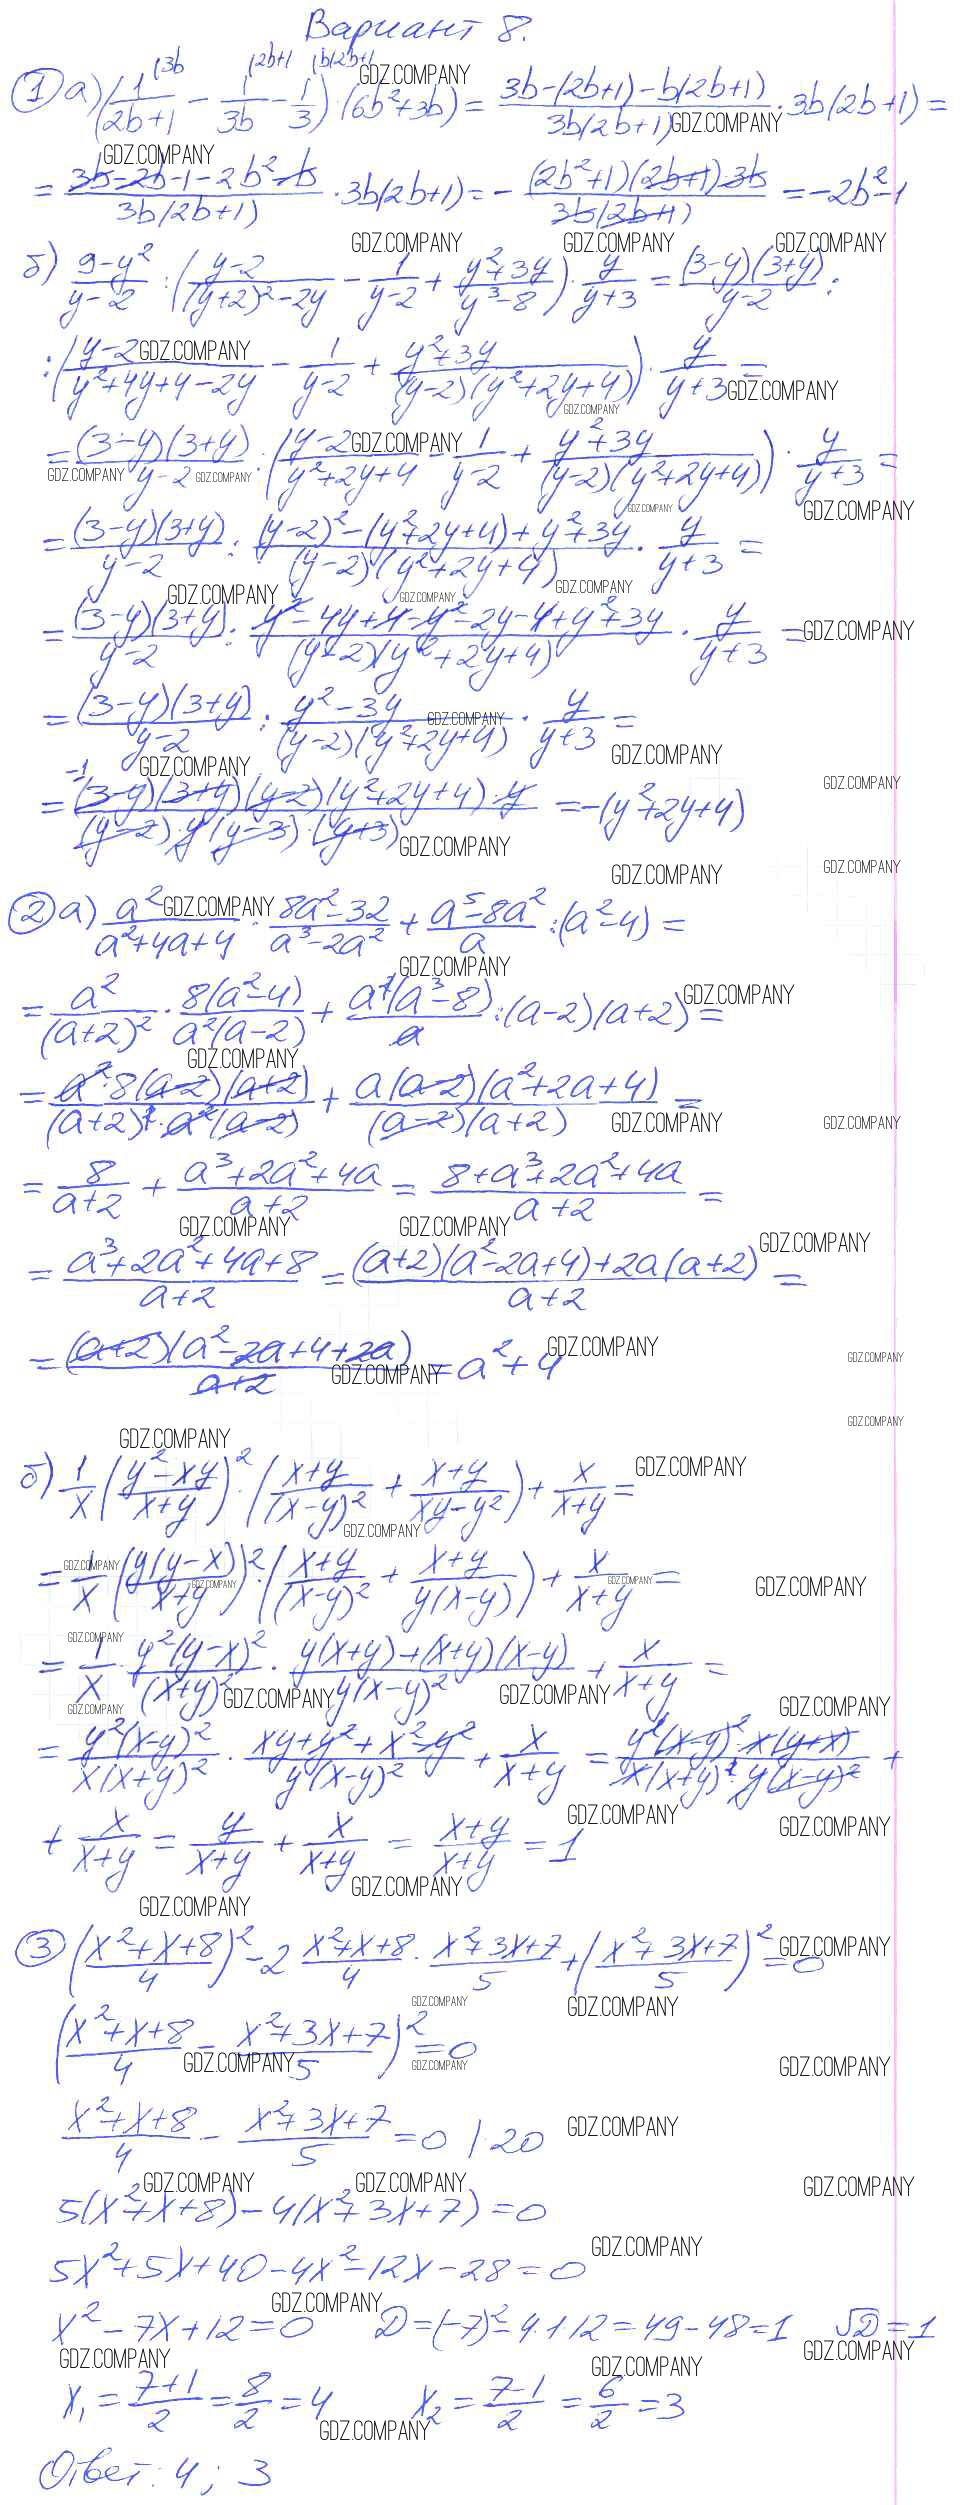 Вариант 8.
1 а) (1/(2b+1) |3b - 1/(3b) |2b+1 - 1/3 |b(2b+1)) · (6b²+3b) = (3b-(2b+1)-b(2b+1))/(3b(2b+1)) · 3b(2b+1) =
= (3b-2b-1-2b²-b)/(3b(2b+1)) · 3b(2b+1) = - ((2b²+1)(2b+1)·3b)/(3b(2b+1)) = -2b²-1
б) (9-y²)/(y-2) : ((y-2)/((y+2)²-2y) - 1/(y-2) + (y²+3y)/(y³-8)) · y/(y+3) = ((3-y)(3+y))/(y-2) :
: ((y-2)/(y²+4y+4-2y) - 1/(y-2) + (y²+3y)/((y-2)(y²+2y+4))) · y/(y+3) =
= ((3-y)(3+y))/(y-2) : ((y-2)/(y²+2y+4) - 1/(y-2) + (y²+3y)/((y-2)(y²+2y+4))) · y/(y+3) =
= ((3-y)(3+y))/(y-2) : ((y-2)²-(y²+2y+4)+y²+3y)/((y-2)(y²+2y+4)) · y/(y+3) =
= ((3-y)(3+y))/(y-2) : (y²-4y+4-y²-2y-4+y²+3y)/((y-2)(y²+2y+4)) · y/(y+3) =
= ((3-y)(3+y))/(y-2) : (y²-3y)/((y-2)(y²+2y+4)) · y/(y+3) =
-1
= ((3-y)(3+y)(y-2)(y²+2y+4)·y)/((y-2)·y(y-3)·(y+3)) = -(y²+2y+4)
2 а) a²/(a²+4a+4) · (8a²-32)/(a³-2a²) + (a⁵-8a²)/a : (a²-4) =
= a²/(a+2)² · (8(a²-4))/(a²(a-2)) + (a²(a³-8))/a : (a-2)(a+2) =
= (a²·8(a-2)(a+2))/((a+2)²·a²(a-2)) + (a(a-2)(a²+2a+4))/((a-2)(a+2)) =
= 8/(a+2) + (a³+2a²+4a)/(a+2) = (8+a³+2a²+4a)/(a+2) =
= (a³+2a²+4a+8)/(a+2) = ((a+2)(a²-2a+4)+2a(a+2))/(a+2) =
= ((a+2)(a²-2a+4+2a))/(a+2) = a²+4
б) 1/x ((y²-xy)/(x+y))² · ((x+y)/(x-y)² + (x+y)/(xy-y²)) + x/(x+y) =
= 1/x ((y(y-x))/(x+y))² · ((x+y)/(x-y)² + (x+y)/(y(x-y))) + x/(x+y) =
= 1/x · (y²(y-x)²)/(x+y)² · (y(x+y)+(x+y)(x-y))/(y(x-y)²) + x/(x+y) =
= (y²(x-y)²)/(x(x+y)²) · (xy+y²+x²-y²)/(y(x-y)²) + x/(x+y) = (y²(x-y)²·x(y+x))/(x(x+y)²·y(x-y)²) +
+ x/(x+y) = y/(x+y) + x/(x+y) = (x+y)/(x+y) = 1
3 ((x²+x+8)/4)² - 2 (x²+x+8)/4 · (x²+3x+7)/5 + ((x²+3x+7)/5)² = 0
((x²+x+8)/4 - (x²+3x+7)/5)² = 0
(x²+x+8)/4 - (x²+3x+7)/5 = 0 |·20
5(x²+x+8)-4(x²+3x+7)=0
5x²+5x+40-4x²-12x-28=0
x²-7x+12=0 D=(-7)²-4·1·12=49-48=1 √D=1
x₁ = (7+1)/2 = 8/2 = 4 x₂ = (7-1)/2 = 6/2 = 3
Ответ: 4; 3
GDZ.COMPANY